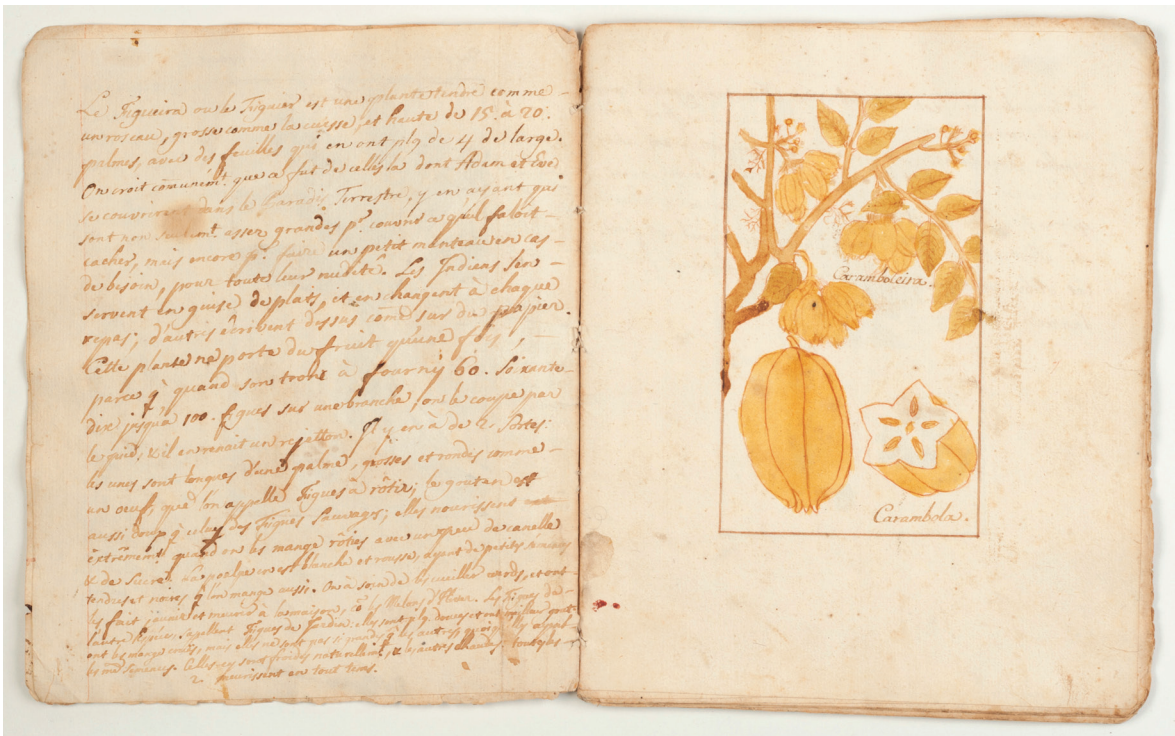 Le Figueira ou le Figuier est une plante tendre comme
un roseau, grosse comme la cuisse, et haute de 15. à 20.
palmes, avec des feuilles qui en ont plq de 4 de large.
On croit comunémt. que ce fut de celles la dont Adam et Eve
se couvrirent dans le Paradis Terrestre, y en ayant qui
sont non seulemt. assez grandes pr. couvrir ce qu'il faloit
cacher, mais encore pr. faire un petit manteau en cas
de besoin, pour toute leur nudité. Les Indiens s'en
servent en guise de plats, et en changent à chaque
repas; d'autres écrivent dessus come sur du papier.
Cette plante ne porte du fruit qu'une fois,
parce q' quand son tronc à fourny 60. Soixante
dix jusqu'à 100. figues sur une branche, on le coupe par
le pied, & il en renait un rejetton. Il y en à de 2. Sortes:
les unes sont longues d'une palme, grosses et rondes comme
un oeuf, que l'on appelle Figues à rôtir; le
aussi doux q' celuy des Figues Sauvages; elles nourrissent
extrêmemt. quand on les mange rôties avec un peu de canelle
& de sucre. La poulpe en est blanche et rousse, ayant de petits
tendres et noires q' l'on mange aussi. On à soin de les cueillir verds, et ont
les fait jaunir et meurir à la maison, les Melons d'hiver. Les Figues de
l'autre figuier, s'apellent Figues de Jardin; elles sont plq douces et ont meilleur gout
ont les mange crües, mais elles ne sont pas si grandes q' les autres
les même semences. Celles cy sont froides naturellemt., & les autres chaudes: toutes les
2. meurissent en tout tems.
Caramboleira.
Carambola.